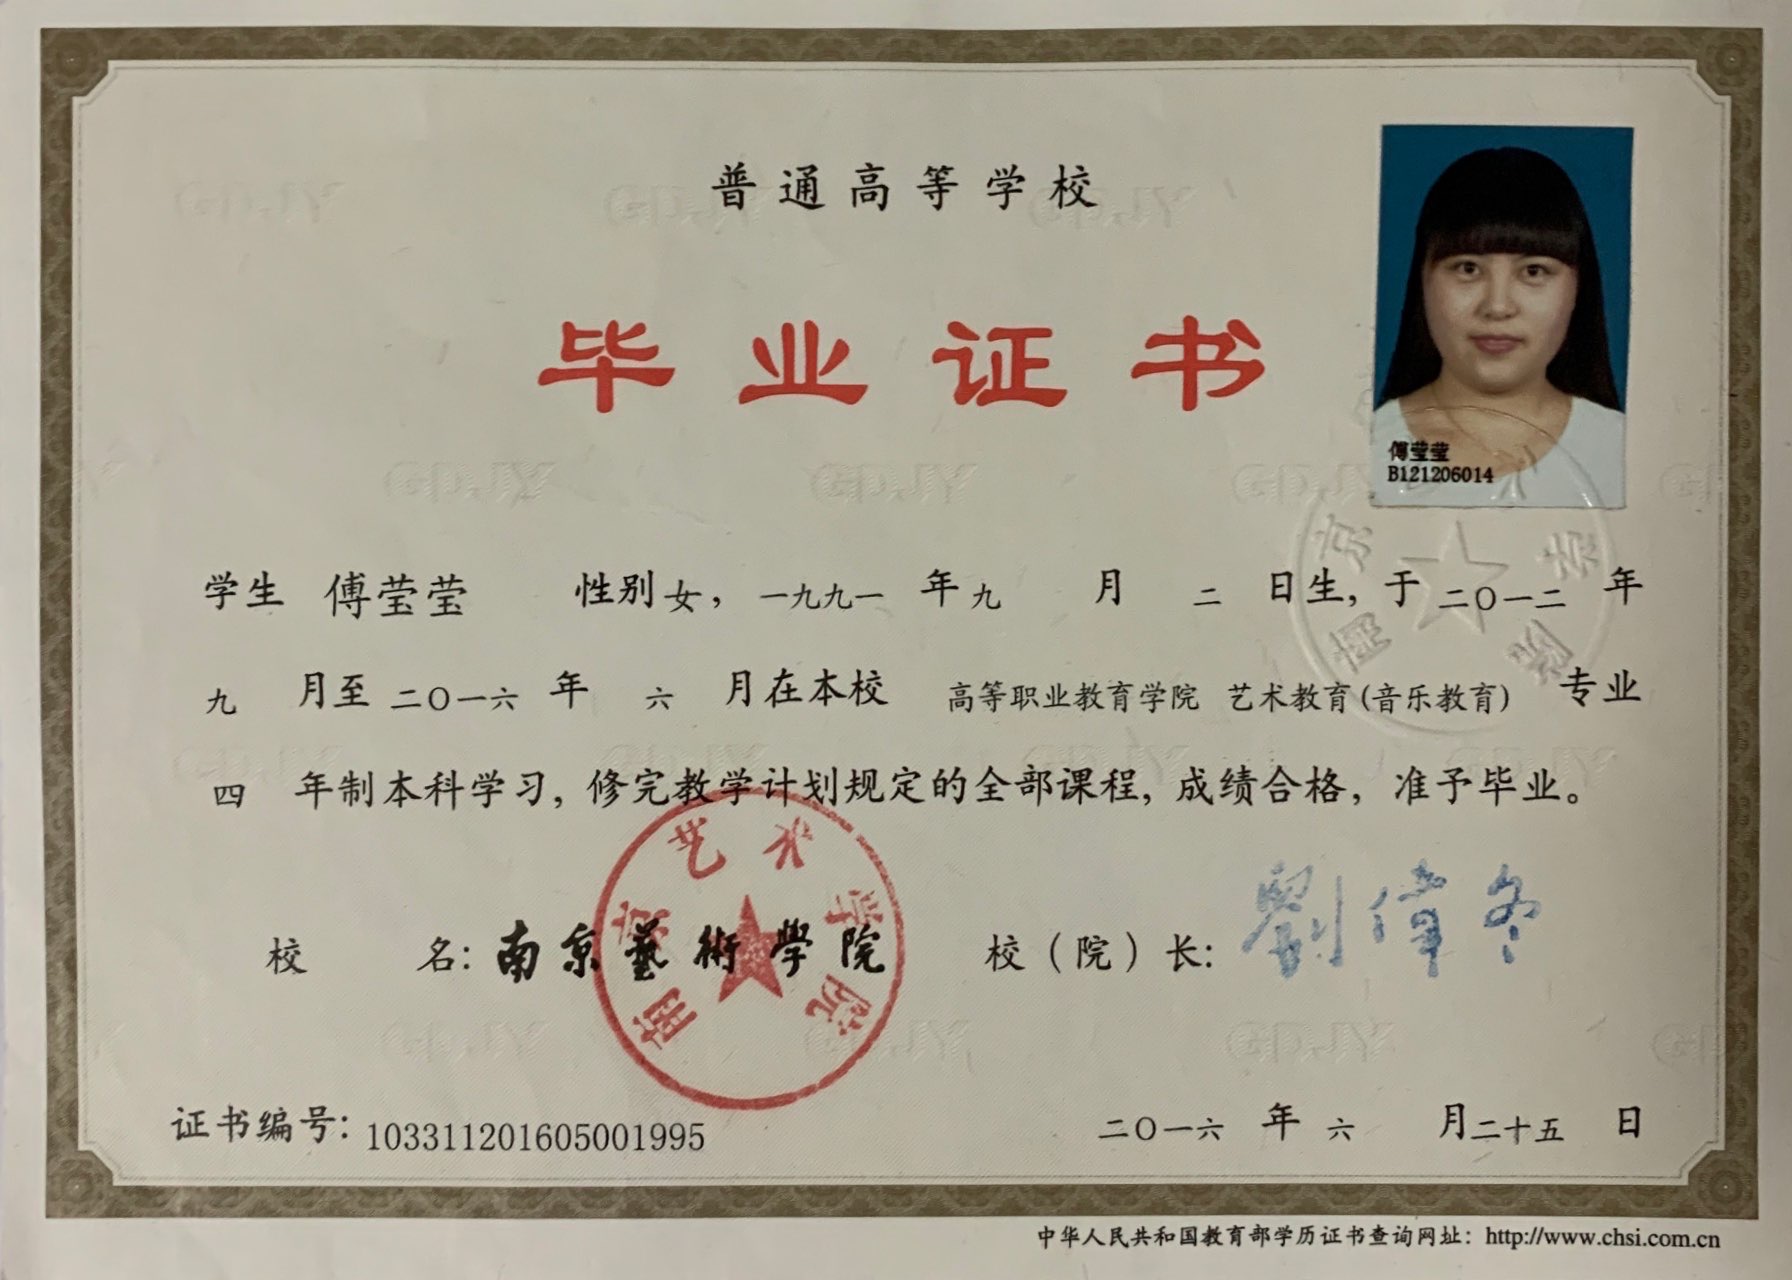 普通高等学校
毕业证书
傅莹莹
B121206014
学生 傅莹莹 性别 女，一九九一 年 九 月 二 日生，于 二〇一二 年
九 月至 二〇一六 年 六 月在本校 高等职业教育学院 艺术教育(音乐教育) 专业
四 年制本科学习，修完教学计划规定的全部课程，成绩合格，准予毕业。
南京艺术学院
校 名：南京藝術學院 校（院）长：劉偉冬
南京艺术学院
证书编号：103311201605001995 二〇一六 年 六 月二十五 日
中华人民共和国教育部学历证书查询网址：http://www.chsi.com.cn